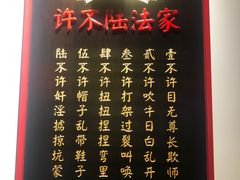 家法陆不许
壹不许目无尊长欺师
贰不许吹牛日白乱开
叁不许打架过叫唤
肆不许扭扭捏捏
伍不许帽子乱带鞋子
陆不许奸淫掳掠坑蒙